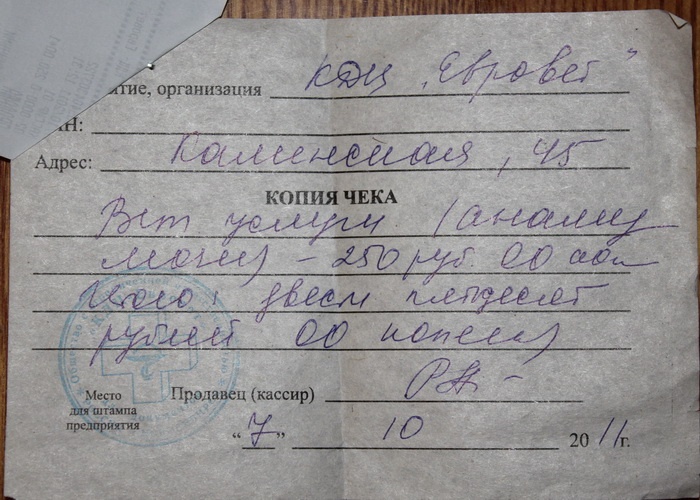 ятие, организация КДЦ „Евровет"
Н:
Адрес: Каменская, 45
КОПИЯ ЧЕКА
Вет услуги (анализ
мочи) – 250 руб. 00 коп
Итого: двести пятдесят
рублей 00 копеек
Продавец (кассир)
Место
для штампа
предприятия
"7" 10 2011г.